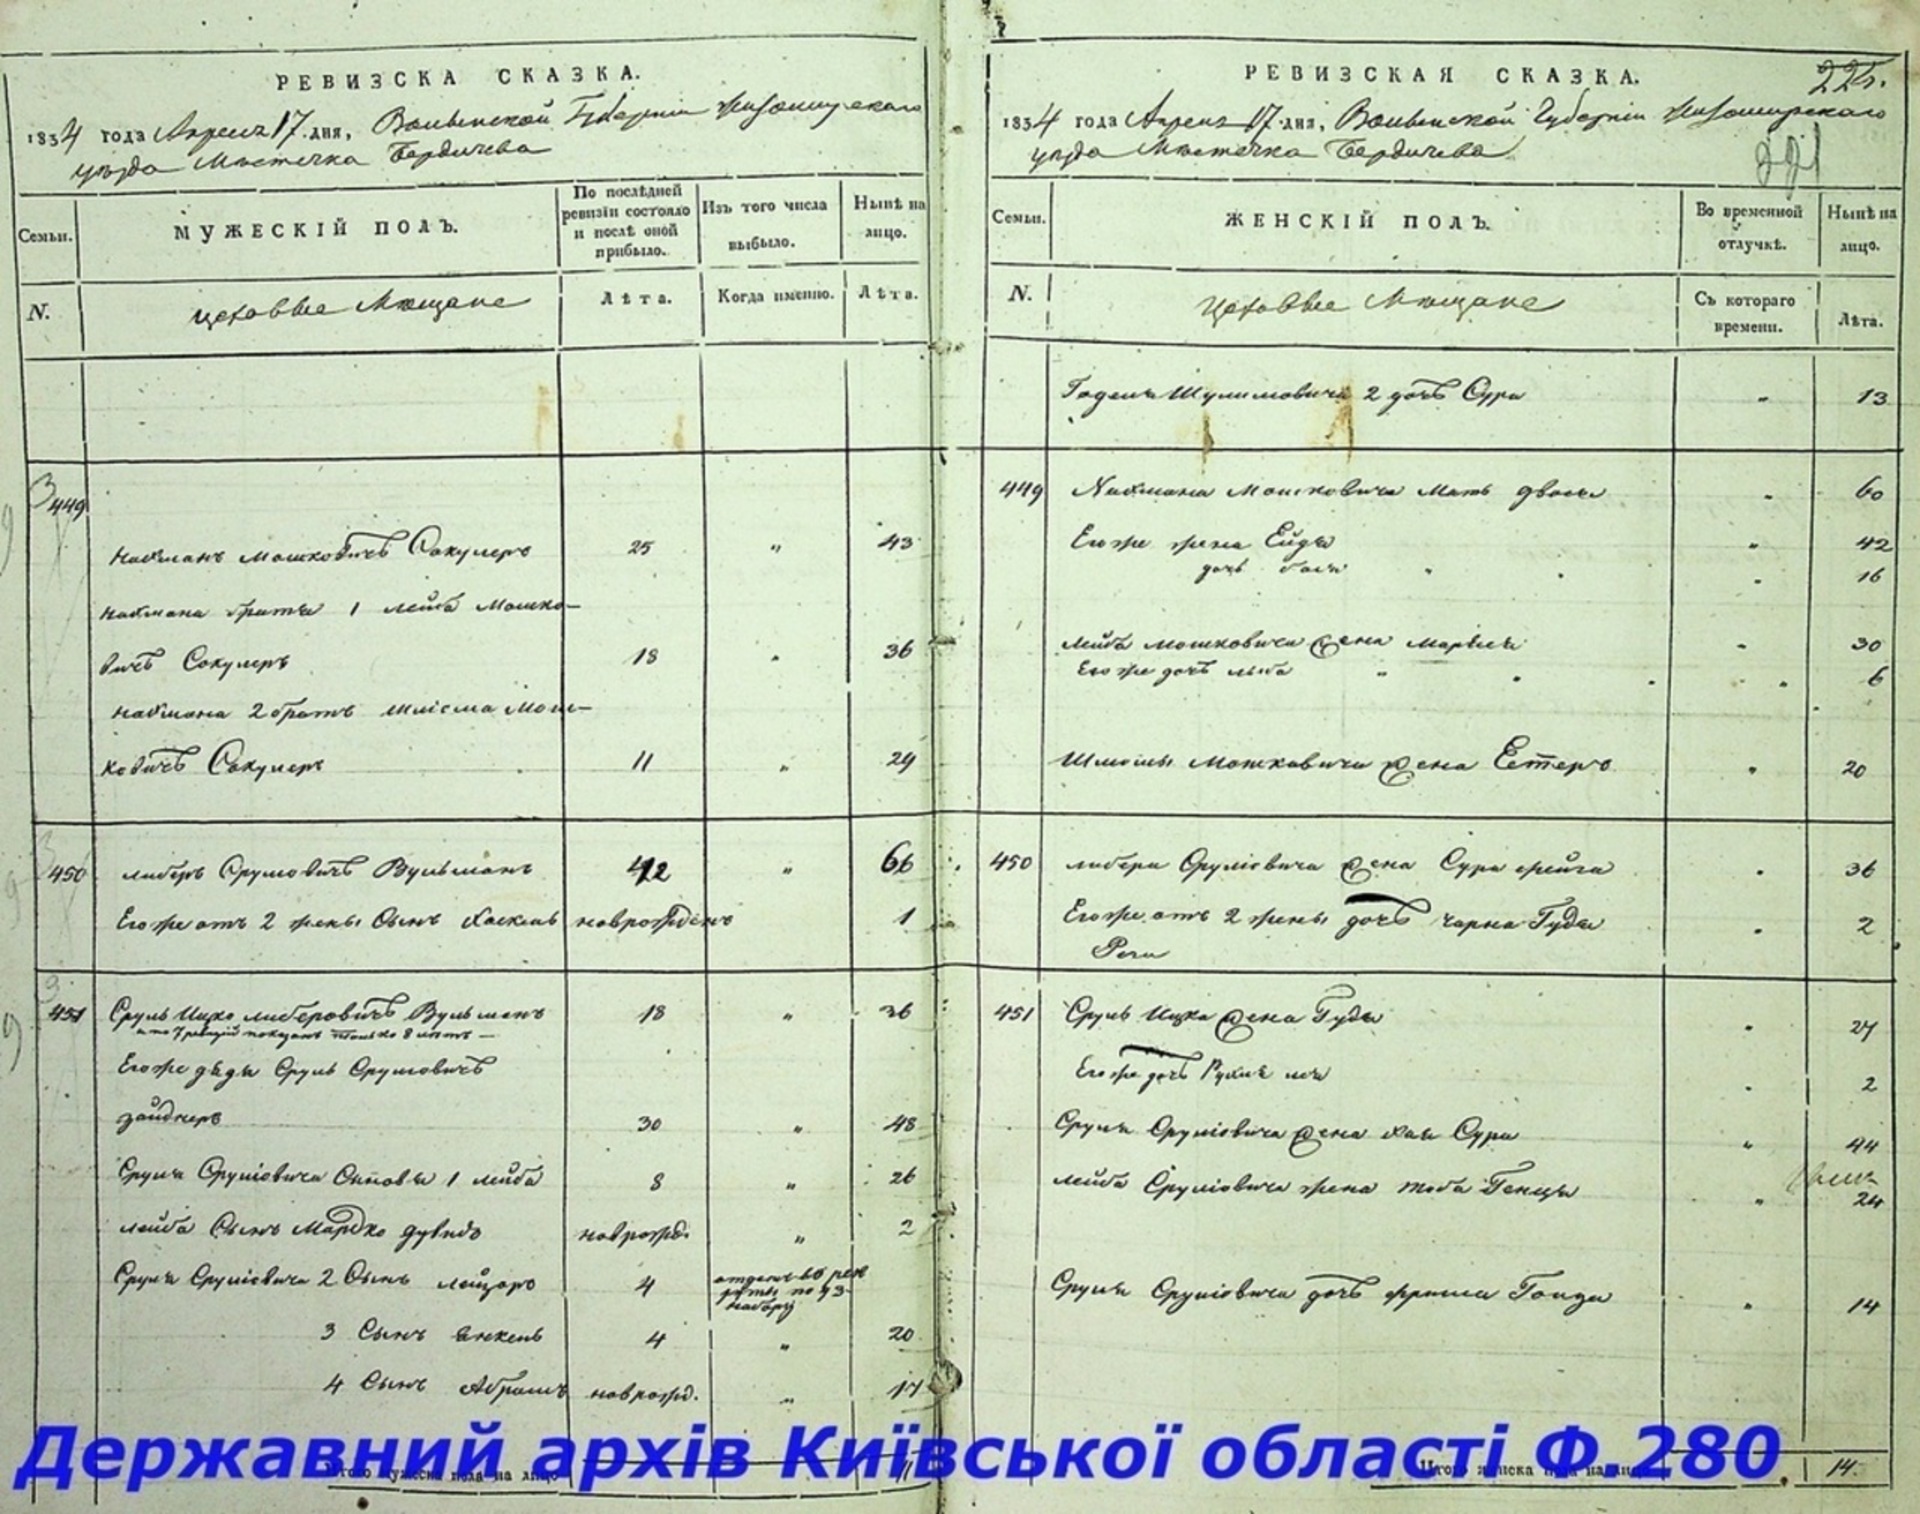 РЕВИЗСКА СКАЗКА.
1834 года Апреля 17 дня, Волынской Губернии Житомирского
уезда Мѣстечка Бердичева
Семьи.
МУЖЕСКІЙ ПОЛЪ.
По послѣдней ревизіи состояло и послѣ оной прибыло.
Изъ того числа выбыло.
Нынѣ на лицо.
N.
цеховые Мещане
Лѣта.
Когда именно.
Лѣта.
449
Нахманъ Мошковичъ Сокулеръ 25 " 43
Нахмана братъ 1 Лейба Мошко-
вичъ Сокулеръ 18 " 36
Нахмана 2 братъ Шліома Мош-
ковичъ Сокулеръ 11 " 29
450 Либеръ Сруліовичъ Вульманъ 42 " 66
Его же отъ 2 жены Сынъ Хаскель новорожденъ 1
451 Сруль Ицко Либеровичъ Вульманъ 18 " 36
а по 7 ревизіи показанъ только 8 лѣтъ —
Его же дядя Сруль Сруліовичъ
Зайднеръ 30 " 48
Сруля Сруліовича Сыновья 1 Лейба 8 " 26
Лейба Сынъ Мардко Дувидъ новрожд. " 2
Сруля Сруліовича 2 Сынъ Лейзоръ 4 отданъ въ рек
руты по 93
набору
3 Сынъ Янкель 4 " 20
4 Сынъ Абрамъ новрожд. " 17
Итого мужеска пола на лицо 11
РЕВИЗСКАЯ СКАЗКА.
1834 года Апреля 17 дня, Волынской Губерніи Житомирскаго
уезда Мѣстечка Бердичева
221
Семьи.
ЖЕНСКІЙ ПОЛЪ.
Во временной отлучкѣ.
Нынѣ на лицо.
N.
Цеховые Мещане
Съ котораго времени.
Лѣта.
Годеля Шулимовича 2 дочь Сура " 13
449 Нахмана Мошковича Мать Двося " 60
Его же жена Ейдя " 42
дочь Бася " 16
Лейба Мошковича жена Марьяся " 30
Его же дочь Либа " 6
Шліомы Мошковича жена Естеръ " 20
450 Либера Сруліовича жена Сура Фейга " 36
Его же отъ 2 жены дочь Чарна Гудя " 2
451 Сруль Ицка жена Гудя " 27
Его же дочь Рухля Лея " 2
Сруля Сруліовича жена Хая Сура " 44
Лейба Сруліовича жена Тоба Генця " 24
Сруля Сруліовича дочь Фрима Голда " 14
Итого женска пола на лицо 14.
Державний архів Київської області Ф.280